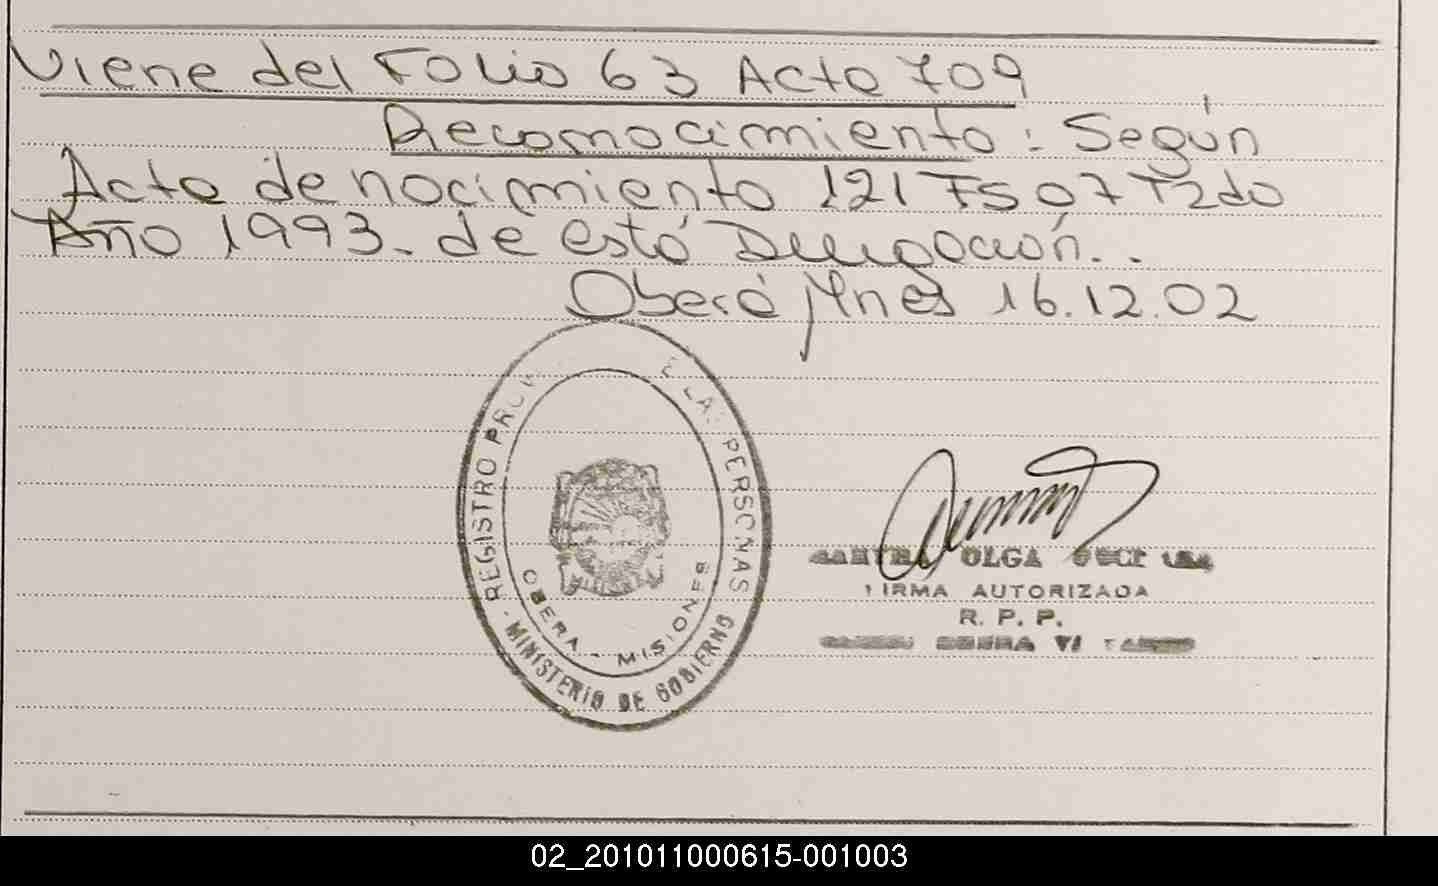 Viene del Folio 63 Acta 709
Reconocimiento: Según
Acta de nacimiento 121 Fs 07 T2do
Año 1993. de esta Delegación..
Oberá Mnes 16.12.02
REGISTRO E LAS PERSONAS
MINISTERIO DE GOBIERNO
OBERA - MISIONES
OLGA
FIRMA AUTORIZADA
R. P. P.
02_201011000615-001003